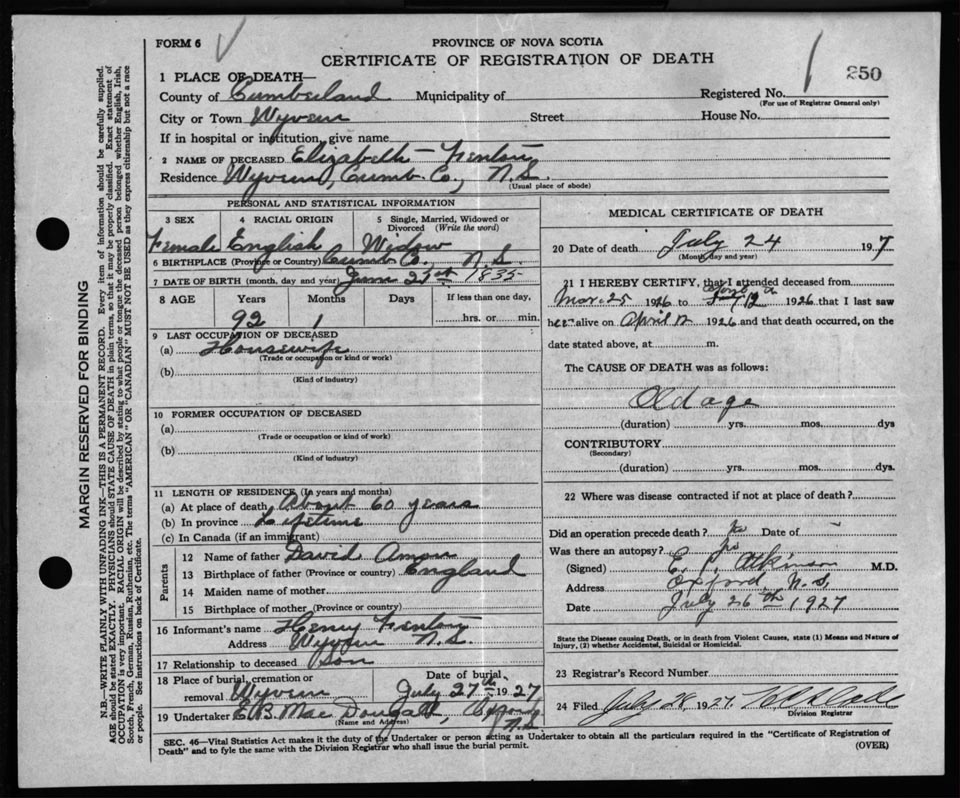 FORM 6
PROVINCE OF NOVA SCOTIA
CERTIFICATE OF REGISTRATION OF DEATH
250
1 PLACE OF DEATH—
County of Cumberland Municipality of Registered No.
(For use of Registrar General only)
City or Town Wyvern Street House No.
If in hospital or institution, give name
2 NAME OF DECEASED Elizabeth
Residence Wyvern, Cumb. Co., N.S.
(Usual place of abode)
PERSONAL AND STATISTICAL INFORMATION
3 SEX 4 RACIAL ORIGIN 5 Single, Married, Widowed or Divorced (Write the word)
Female English Widow
6 BIRTHPLACE (Province or Country) Cumb Co. N.S.
7 DATE OF BIRTH (month, day and year) June 21st 1835
8 AGE Years Months Days If less than one day,
92 1 hrs. or min.
9 LAST OCCUPATION OF DECEASED
(a) Housewife
(Trade or occupation or kind of work)
(b)
(Kind of industry)
10 FORMER OCCUPATION OF DECEASED
(a)
(Trade or occupation or kind of work)
(b)
(Kind of industry)
11 LENGTH OF RESIDENCE (In years and months)
(a) At place of death About 60 years
(b) In province Lifetime
(c) In Canada (if an immigrant)
Parents
12 Name of father David Amon
13 Birthplace of father (Province or country) England
14 Maiden name of mother
15 Birthplace of mother (Province or country)
16 Informant's name Henry
Address Wyvern N.S.
17 Relationship to deceased Son
18 Place of burial, cremation or removal Wyvern Date of burial July 27th 1927
19 Undertaker E.B. MacDougall, Oxford N.S.
(Name and Address)
MEDICAL CERTIFICATE OF DEATH
20 Date of death July 24 1927
(Month, day and year)
21 I HEREBY CERTIFY, that I attended deceased from
Mar. 25 1926 to 12 1926 that I last saw
her alive on April 12 1926 and that death occurred, on the
date stated above, at m.
The CAUSE OF DEATH was as follows:
Old age
(duration) yrs. mos. dys
CONTRIBUTORY
(Secondary)
(duration) yrs. mos. dys.
22 Where was disease contracted if not at place of death?
Did an operation precede death? No Date of —
Was there an autopsy? No
(Signed) E. P. Atkinson M.D.
Address Oxford N.S.
Date July 26th 1927
State the Disease causing Death, or in death from Violent Causes, state (1) Means and Nature of
Injury, (2) whether Accidental, Suicidal or Homicidal.
23 Registrar's Record Number
24 Filed July 28, 1927
Division Registrar
SEC. 46—Vital Statistics Act makes it the duty of the Undertaker or person acting as Undertaker to obtain all the particulars required in the "Certificate of Registration of
Death" and to fyle the same with the Division Registrar who shall issue the burial permit.
(OVER)
MARGIN RESERVED FOR BINDING
N.B.—WRITE PLAINLY WITH UNFADING INK—THIS IS A PERMANENT RECORD. Every item of information should be carefully supplied.
AGE should be stated EXACTLY. PHYSICIANS should STATE CAUSE OF DEATH in plain terms, so that it may be properly classified. Exact statement of
OCCUPATION is very important. RACIAL ORIGIN will be described by stating to what people or tongue the deceased person belonged whether English, Irish,
Scotch, French, German, Russian, Ruthenian, etc. The terms "AMERICAN" OR "CANADIAN" MUST NOT BE USED as they express citizenship but not a race
or people. See instructions on back of Certificate.